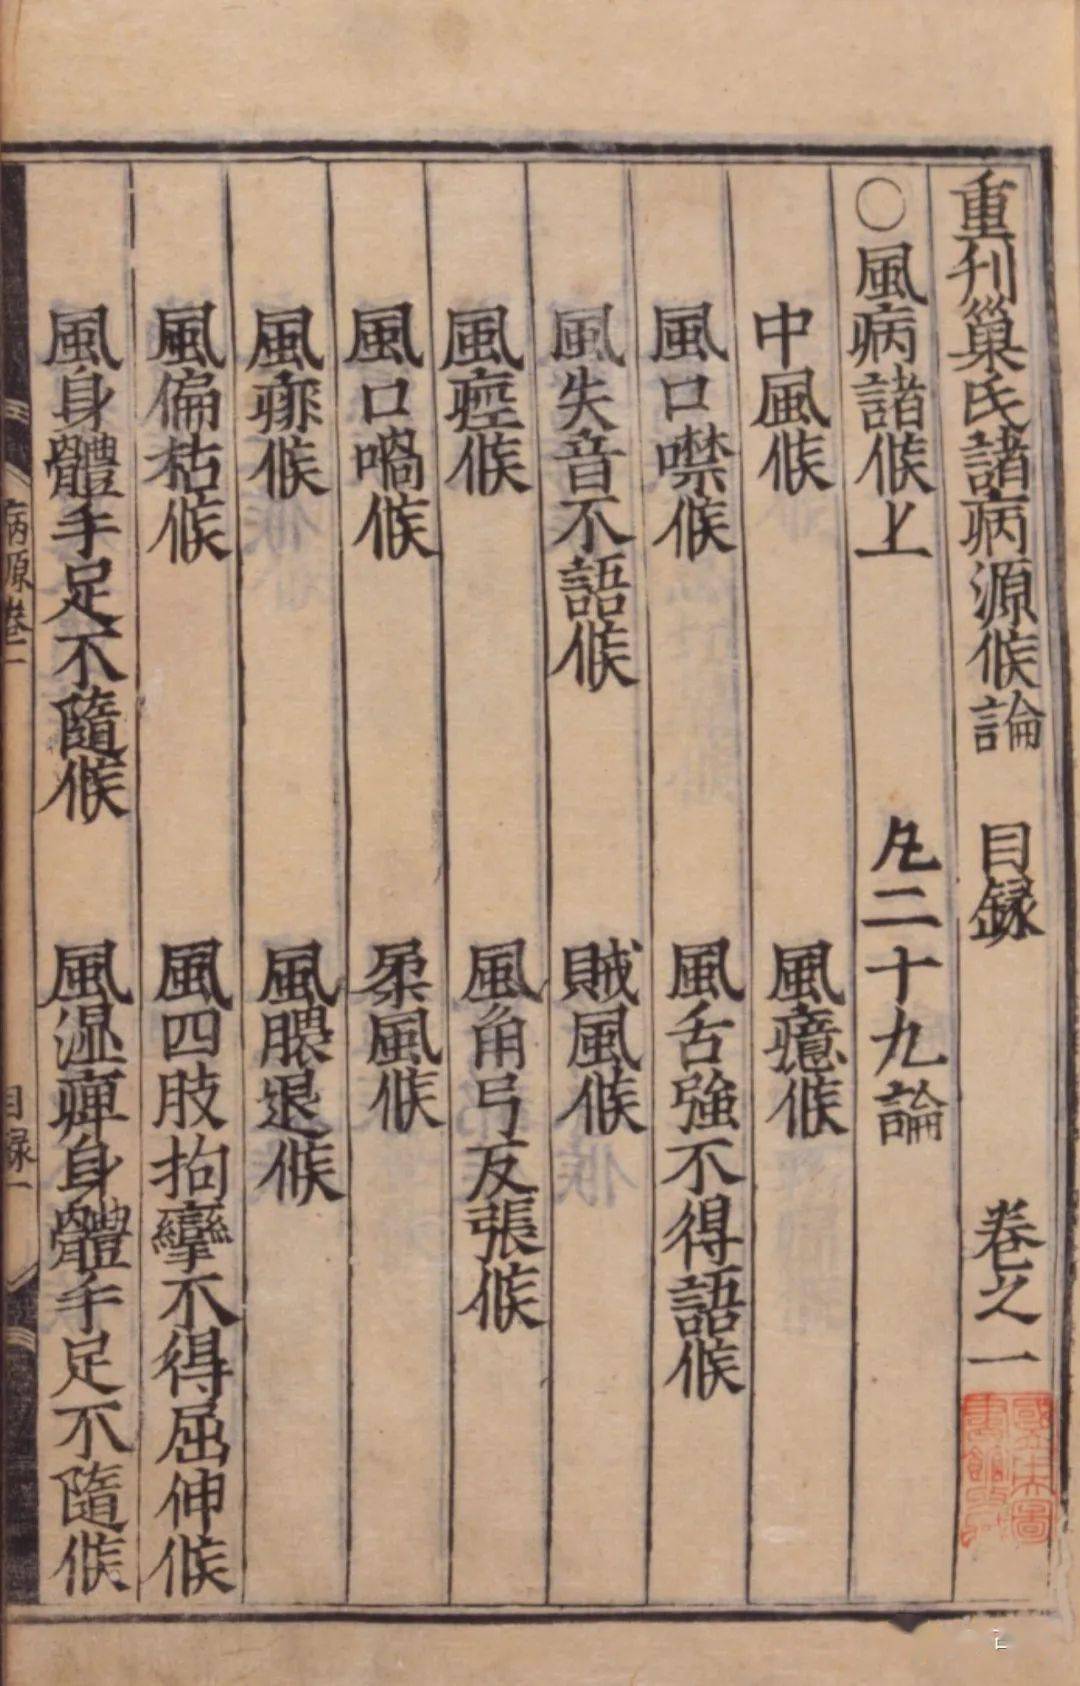 重刊巢氏諸病源候論 目録 卷之一
○風病諸候上 凡二十九論
中風候 風癔候
風口噤候 風舌強不得語候
風失音不語候 賊風候
風痙候 風角弓反張候
風口喎候 柔風候
風痱候 風腲退候
風偏枯候 風四肢拘攣不得屈伸候
風身體手足不隨候 風湿痺身體手足不隨候
病源卷一 目録一